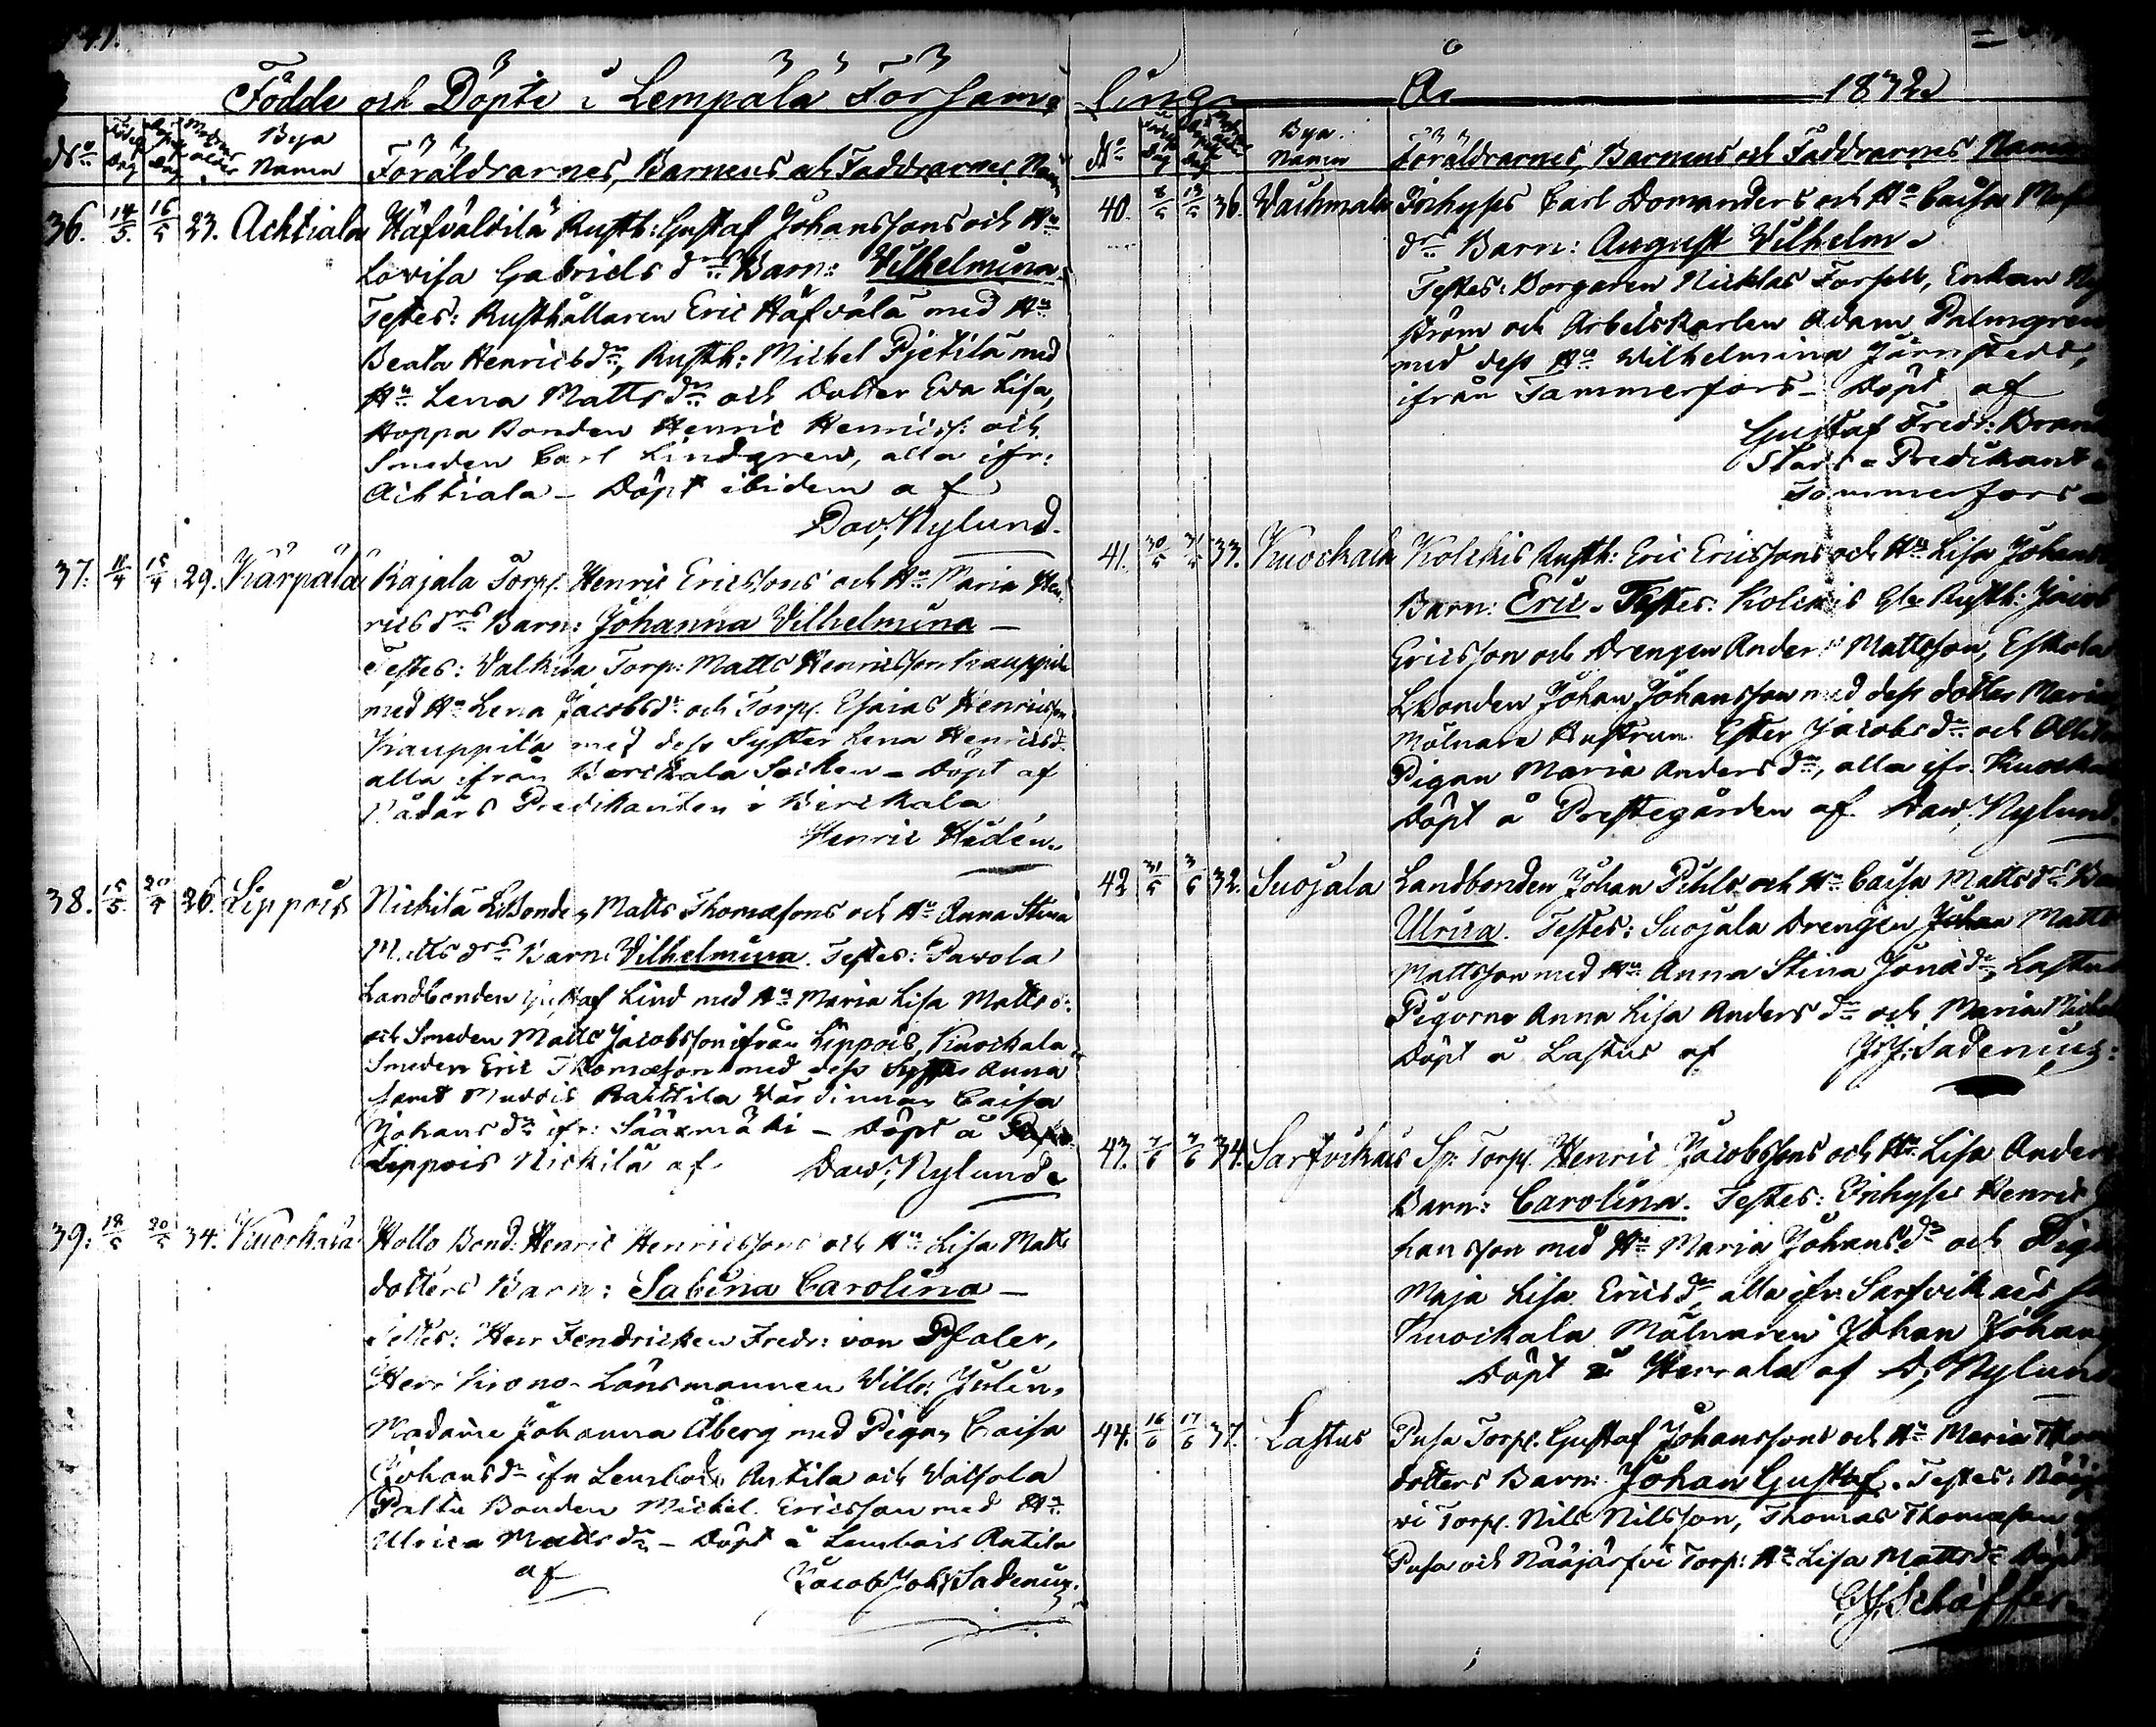 141.
Födde och Döpte i Lempälä Försam-
No Födelse Dag Döpelse Dag Modrens ålder Bya Namn Föräldrarnes, Barnens och Faddrarnes Namn
36. 14/5. 16/5 23. Achtiala Häfvältilä Rusth: Gustaf Johanssons och Hu
Lovisa Gabriels drs Barn: Vilhelmina.
Testes: Rusthållaren Eric Häfvälä med Hu
Beata Henricsdr, Rusth: Michel Pjetilä med
Hu Lena Mattsdr och Dotter Eva Lisa,
Hoppa Bonden Henric Henricss: och
Smeden Carl Lindgren, alla ifr:
Achtiala - Döpt ibidem af
Dav; Nylund.
37. 11/4 15/4 29. Kärpälä Rajala Torp. Henric Ericssons och Hu Maria Hen-
rics drs Barn: Johanna Vilhelmina -
Testes: Valkila Torp: Matts Henricsson Kauppila
med Hu Lena Jacobsdr och Torp. Esaias Henricsson
Kauppila med dess Syster Lena Henricsd.
alla ifrån Birckala Socken - Döpt af
Sådärs Predikanten i Birckala
Henric Hedén.
38. 15/5. 20/5 26. Lippois Nickilä LBonden Matts Thomæsons och Hu Anna Stina
Matts drs Barn: Vilhelmina. Testes: Pavola
Landbonden Gustaf Lind med Hu Maria Lisa Mattsd:
och Smeden Matts Jacobsson ifrån Lippois, Kuockala
Smeden Eric Thomæson med dess Syster Anna
samt Raittila Värdinnan Caisa
Johansdr ifr: Sääxmäki - Döpt å
Lippois Nickilä af Dav; Nylund.
39. 18/5 20/5 34. Kuockala Hollo Bond: Henric Henricssons och Hu Lisa Matts
dotters Barn: Sabina Carolina -
Testes: Herr Fendricken Fredr: von Pfaler,
Herr Krono-Länsmannen Vilh: Julin,
Madame Johanna Åberg med Pigan Caisa
Johansdr ifn Lembois Antila och Vaisola
Paltu Bonden Michel Ericsson med Hu
Ulrica Mattsdr - Döpt å Lembois Antila
af Jacob Joh; Sadenius.
ling År 1832
No Födelse Dag Döpelse Dag Modrens ålder Bya Namn Föräldrarnes, Barnens och Faddrarnes Namn
40. 8/5 13/5 36. Vachmala Inhyses Carl Domanders och Hu Caisa
drs Barn: August Vilhelm.
Testes: Borgaren Nicklas Forsell, Enkan Ny
ström och Arbetskarlen Adam Palmgren
med dess Hu Wilhelmina Järnstedt,
ifrån Tammerfors - Döpt af
Gustaf Fredr: Brand
Stads-Predikant i
Tammerfors.
41. 30/5 31/5 33. Kuockala Kolckis Rusth: Eric Ericssons och Hu Lisa Johans
Barn: Eric. Testes: Kolckis Rusth: Jacob
Ericsson och Drengen Anders Mattsson, Eskola
LBonden Johan Johansson med dess dotter Maria
Mölnare Hustrun Ester Jacobsdr och
Pigan Maria Andersdr, alla ifr. Kuockala
Döpt å Prestegården af Dav; Nylund.
42 31/5 3/6 32. Suojala Landbonden Johan Pihls och Hu Caisa Mattsdrs Bar
Ulrica. Testes: Suojala Drengen Johan Matts
Mattsson med Hu Anna Stina Jonædr, Lastus
Pigorne Anna Lisa Andersdr och Maria Michels
Döpt å Lastus af J:J: Sadenius:
43. 2/6 3/6 34. Sarfvikais Sp: Torp. Henric Jacobssons och Hu Lisa Anders
Barn: Carolina. Testes: Inhyses Henric Jo
hansson med Hu Maria Johansdr och Pigan
Maja Lisa Ericsdr alla ifr. Sarfvikais
Kuockala Mölnaren Johan Johans
Döpt å Herrala af D; Nylund
44. 16/6 17/6 37. Lastus Pusa Torp. Gustaf Johanssons och Hu Maria Thom
dotters Barn: Johan Gustaf. Testes:
vi Torp. Nils Nilsson, Thomas Thomæson
Pusa och Nääjärfvi Torp: Hu Lisa Mattsdr Döpt
G.J. Schäffer.